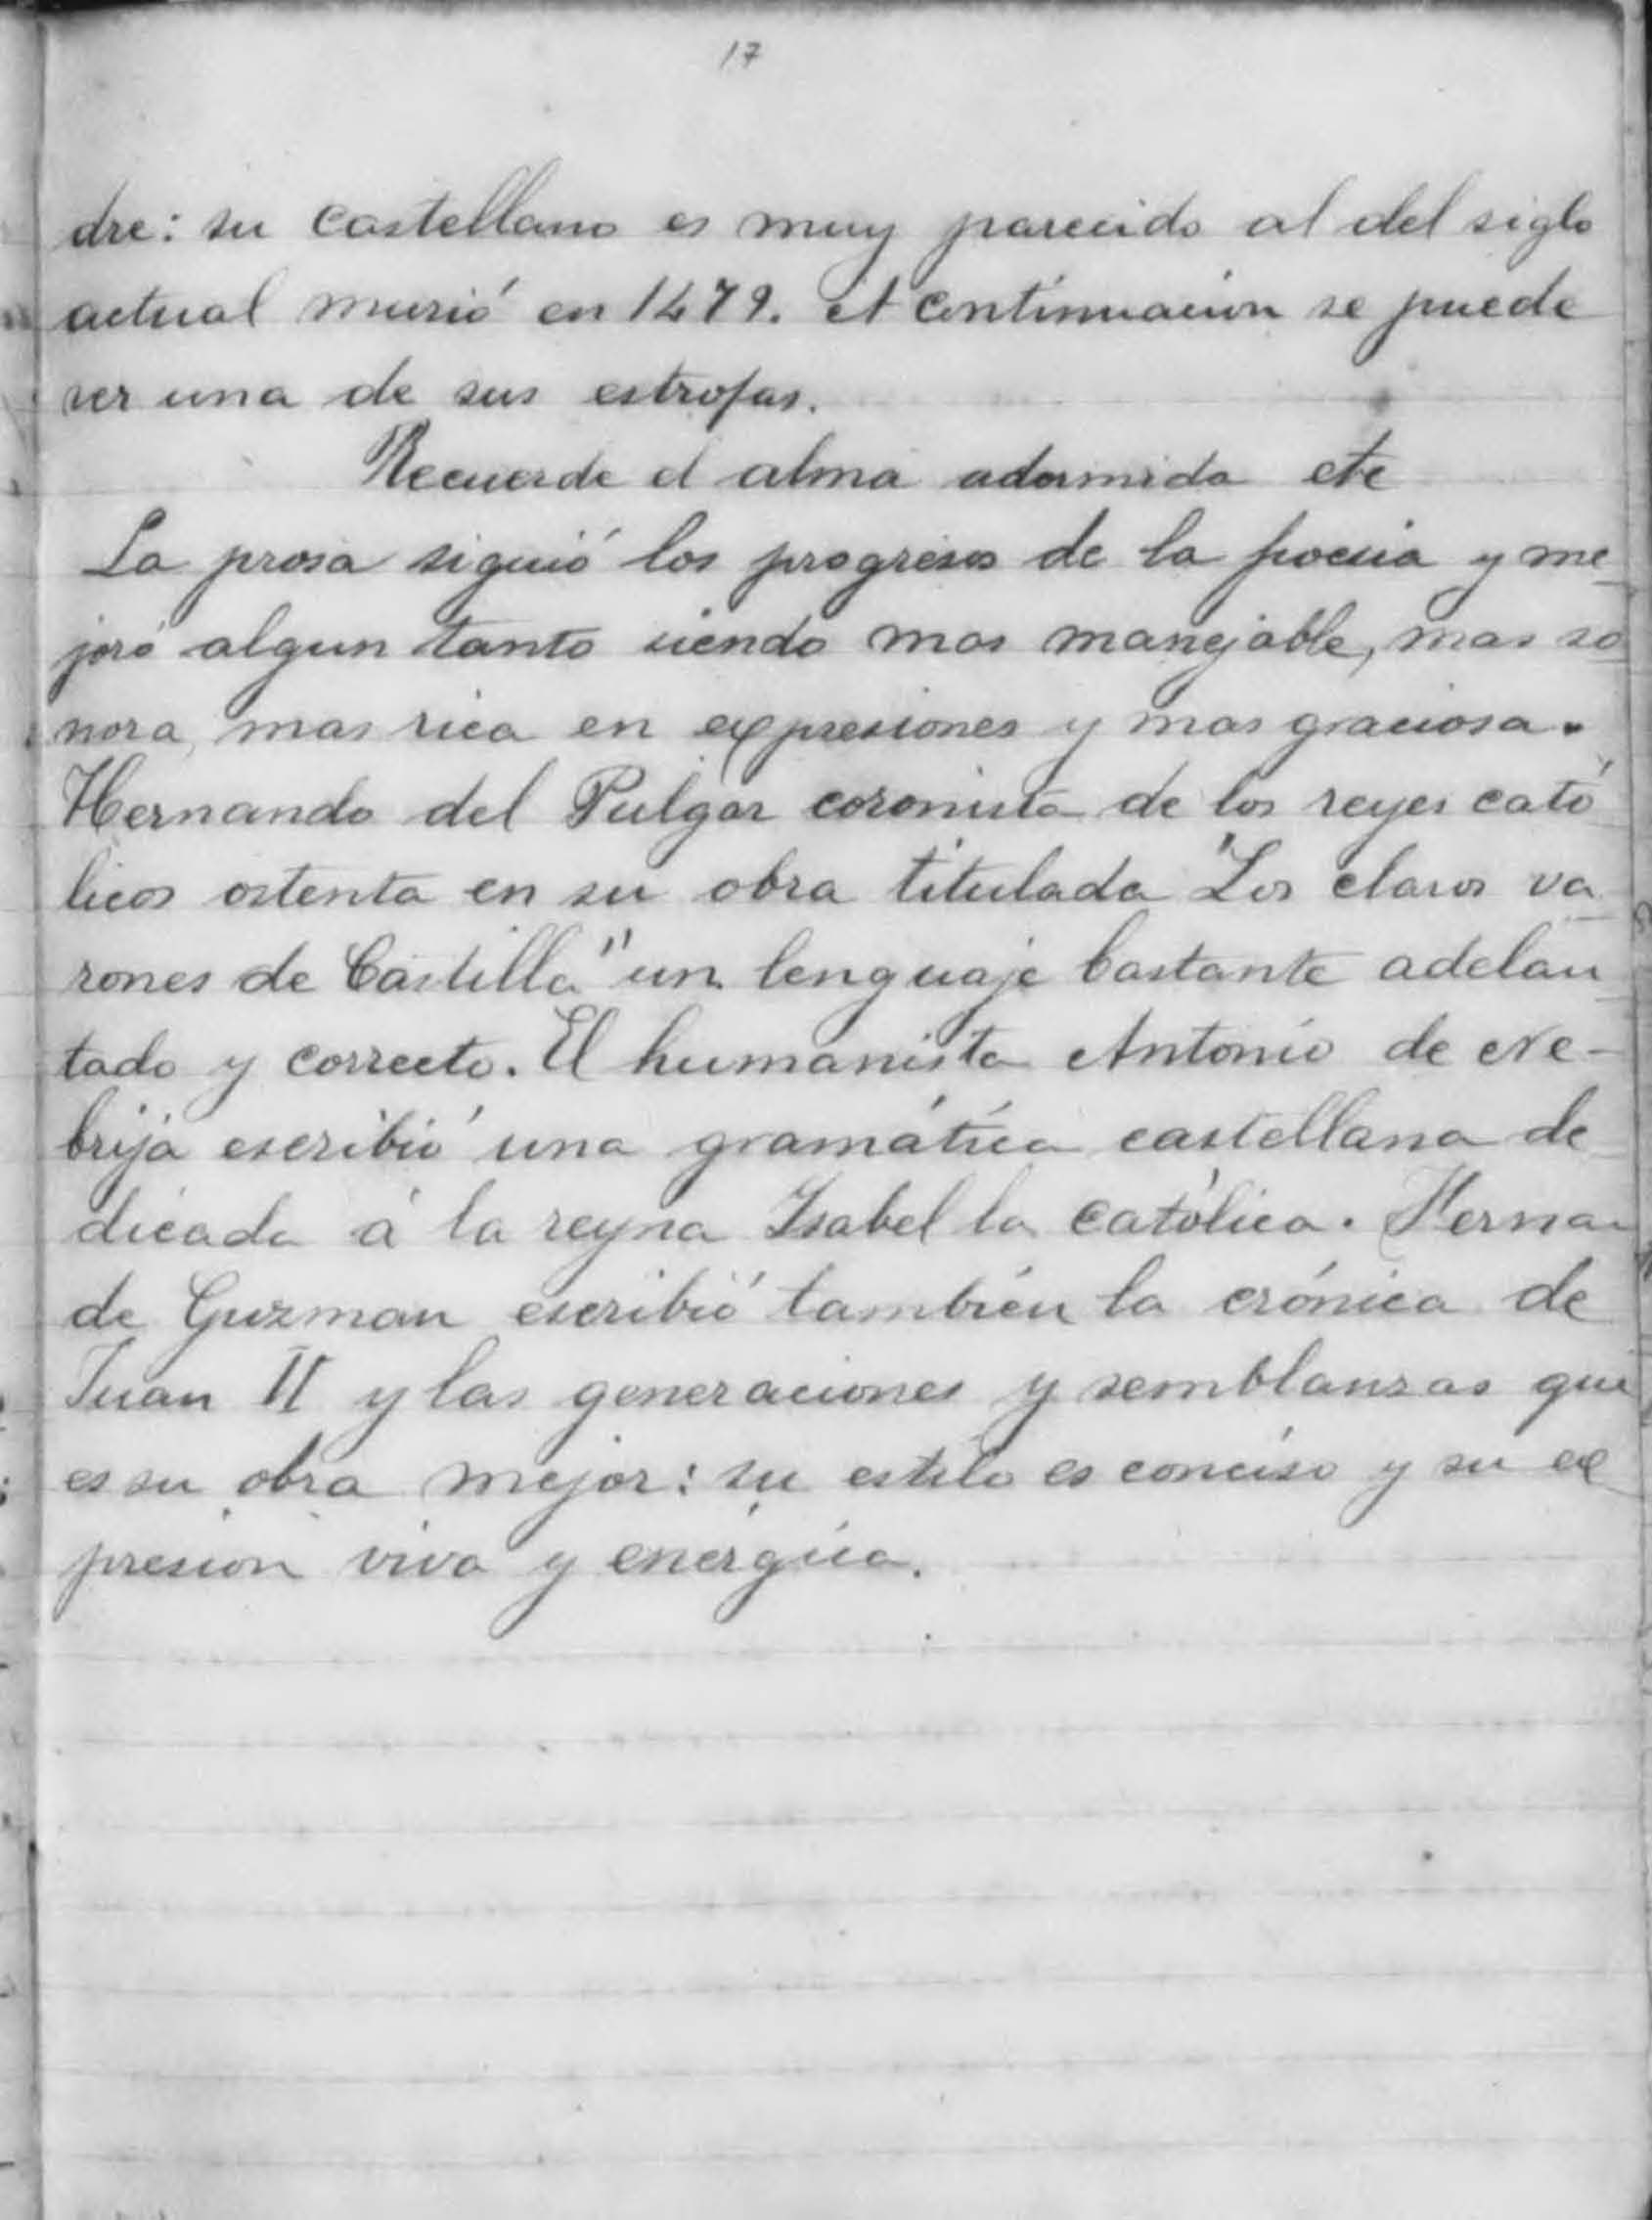 17
dre: su castellano es muy parecido al del siglo
actual murió en 1479. A continuacion se puede
ver una de sus estrofas.
Recuerde el alma adormida etc
La prosa siguió los progresos de la poesia y me
joró algun tanto siendo mas manejable, mas so
nora, mas rica en expresiones y mas graciosa.
Hernando del Pulgar coronista de los reyes cató
licos ostenta en su obra titulada "Los claros va
rones de Castilla" un lenguaje bastante adelan
tado y correcto. El humanista Antonio de Ne-
brija escribió una gramática castellana de
dicada á la reyna Isabel la católica. Hernan
de Guzman escribió también la crónica de
Juan II y las generaciones y semblanzas que
es su obra mejor: su estilo es conciso y su ex
presion viva y enérgica.